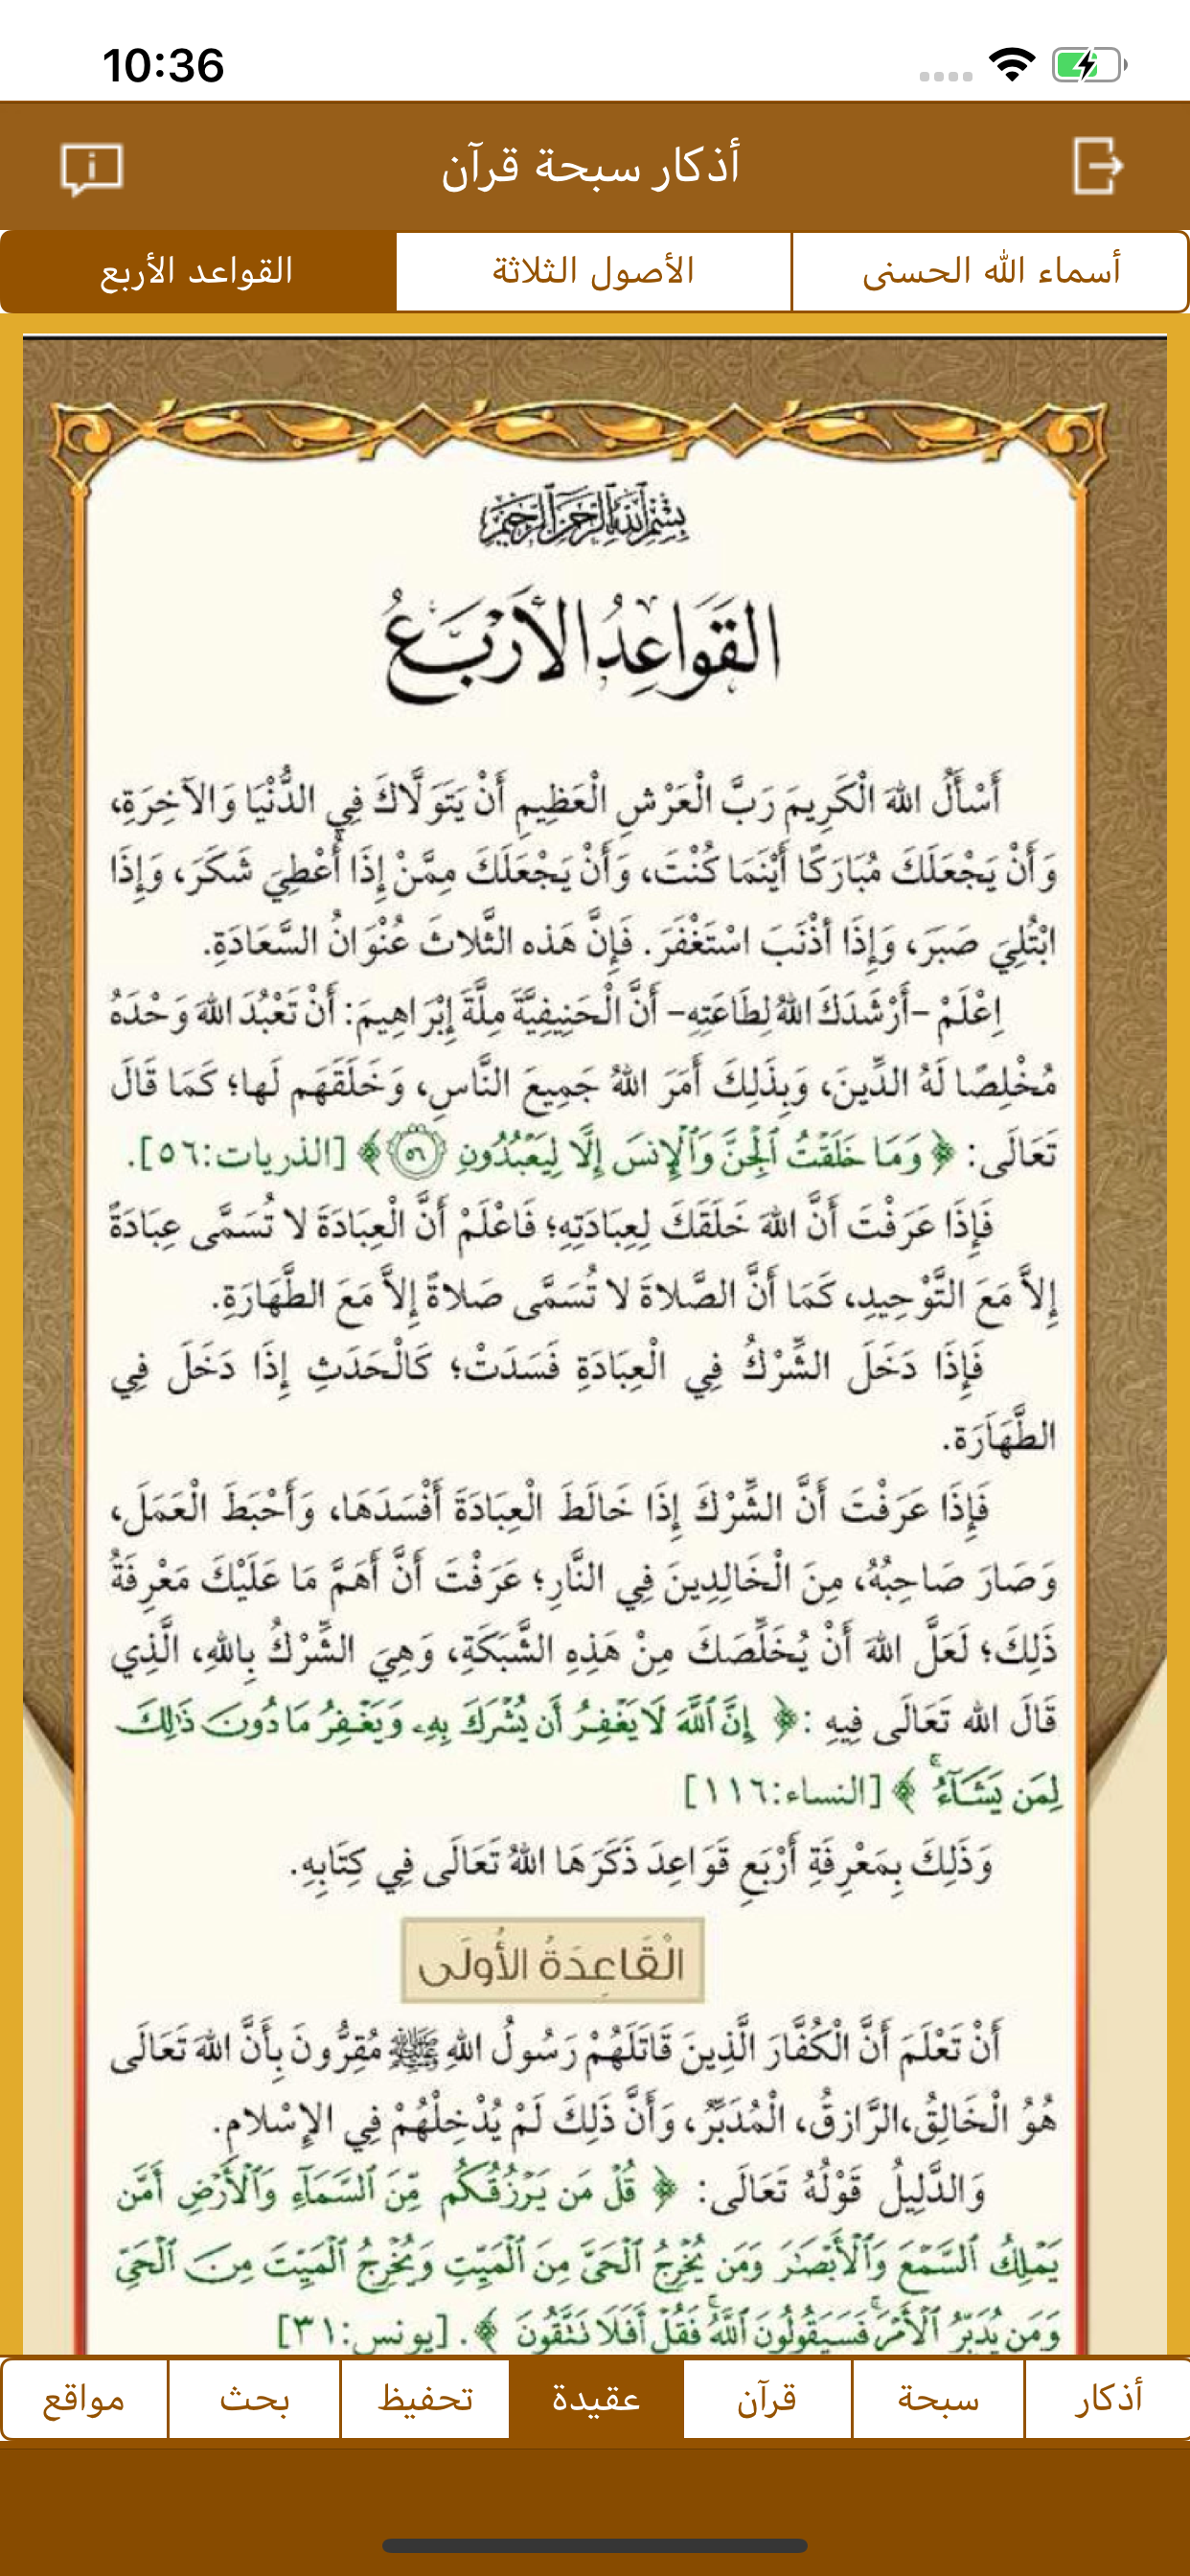 10:36
أذكار سبحة قرآن
أسماء الله الحسنى
الأصول الثلاثة
القواعد الأربع
بِسْمِ اللَّهِ الرَّحْمَٰنِ الرَّحِيمِ
القَوَاعِدُ الأَرْبَعُ
أَسْأَلُ اللهَ الْكَرِيمَ رَبَّ الْعَرْشِ الْعَظِيمِ أَنْ يَتَوَلَّاكَ فِي الدُّنْيَا وَالآخِرَةِ،
وَأَنْ يَجْعَلَكَ مُبَارَكًا أَيْنَمَا كُنْتَ، وَأَنْ يَجْعَلَكَ مِمَّنْ إِذَا أُعْطِيَ شَكَرَ، وَإِذَا
ابْتُلِيَ صَبَرَ، وَإِذَا أَذْنَبَ اسْتَغْفَرَ. فَإِنَّ هَذه الثَّلاثَ عُنْوَانُ السَّعَادَةِ.
اِعْلَمْ –أَرْشَدَكَ اللهُ لِطَاعَتِهِ– أَنَّ الْحَنِيفِيَّةَ مِلَّةَ إِبْرَاهِيمَ: أَنْ تَعْبُدَ اللهَ وَحْدَهُ
مُخْلِصًا لَهُ الدِّينَ، وَبِذَلِكَ أَمَرَ اللهُ جَمِيعَ النَّاسِ، وَخَلَقَهُم لَها؛ كَمَا قَالَ
تَعَالَى: ﴿ وَمَا خَلَقْتُ ٱلْجِنَّ وَٱلْإِنسَ إِلَّا لِيَعْبُدُونِ ٥٦ ﴾ [الذريات:٥٦].
فَإِذَا عَرَفْتَ أَنَّ اللهَ خَلَقَكَ لِعِبَادَتِهِ؛ فَاعْلَمْ أَنَّ الْعِبَادَةَ لا تُسَمَّى عِبَادَةً
إِلاَّ مَعَ التَّوْحِيدِ، كَمَا أَنَّ الصَّلاةَ لا تُسَمَّى صَلاةً إِلاَّ مَعَ الطَّهَارَةِ.
فَإِذَا دَخَلَ الشِّرْكُ فِي الْعِبَادَةِ فَسَدَتْ؛ كَالْحَدَثِ إِذَا دَخَلَ فِي
الطَّهَارَة.
فَإِذَا عَرَفْتَ أَنَّ الشِّرْكَ إِذَا خَالَطَ الْعِبَادَةَ أَفْسَدَهَا، وَأَحْبَطَ الْعَمَلَ،
وَصَارَ صَاحِبُهُ، مِنَ الْخَالِدِينَ فِي النَّارِ؛ عَرَفْتَ أَنَّ أَهَمَّ مَا عَلَيْكَ مَعْرِفَةُ
ذَلِكَ؛ لَعَلَّ اللهَ أَنْ يُخَلِّصَكَ مِنْ هَذِهِ الشَّبَكَةِ، وَهِيَ الشِّرْكُ بِاللهِ، الَّذِي
قَالَ الله تَعَالَى فِيهِ :﴿ إِنَّ ٱللَّهَ لَا يَغْفِرُ أَن يُشْرَكَ بِهِۦ وَيَغْفِرُ مَا دُونَ ذَٰلِكَ
لِمَن يَشَآءُ ۚ ﴾ [النساء:١١٦]
وَذَلِكَ بِمَعْرِفَةِ أَرْبَعِ قَوَاعِدَ ذَكَرَهَا اللهُ تَعَالَى فِي كِتَابِهِ.
الْقَاعِدَةُ الأُولَى
أَنْ تَعْلَمَ أَنَّ الْكُفَّارَ الَّذِينَ قَاتَلَهُمْ رَسُولُ اللهِ ﷺ مُقِرُّونَ بِأَنَّ اللهَ تَعَالَى
هُوُ الْخَالِقُ،الرَّازِقُ، الْمُدَبِّرُ، وَأَنَّ ذَلِكَ لَمْ يُدْخِلْهُمْ فِي الإِسْلامِ.
وَالدَّلِيلُ قَوْلُهُ تَعَالَى: ﴿ قُلْ مَن يَرْزُقُكُم مِّنَ ٱلسَّمَآءِ وَٱلْأَرْضِ أَمَّن
يَمْلِكُ ٱلسَّمْعَ وَٱلْأَبْصَٰرَ وَمَن يُخْرِجُ ٱلْحَىَّ مِنَ ٱلْمَيِّتِ وَيُخْرِجُ ٱلْمَيِّتَ مِنَ ٱلْحَىِّ
وَمَن يُدَبِّرُ ٱلْأَمْرَ ۚ فَسَيَقُولُونَ ٱللَّهُ ۚ فَقُلْ أَفَلَا تَتَّقُونَ ﴾. [يونس:٣١]
أذكار
سبحة
قرآن
عقيدة
تحفيظ
بحث
مواقع